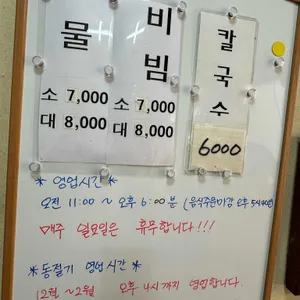 물
소 7,000
대 8,000
비빔
소 7,000
대 8,000
칼국수
6000
* 영업시간 *
오전 11:00 ~ 오후 6:00분 (음식주문마감 오후 5시40분)
매주 일요일은 휴무합니다!!!
* 동절기 영업시간 *
12월 ~ 2월 오후 4시까지 영업합니다.